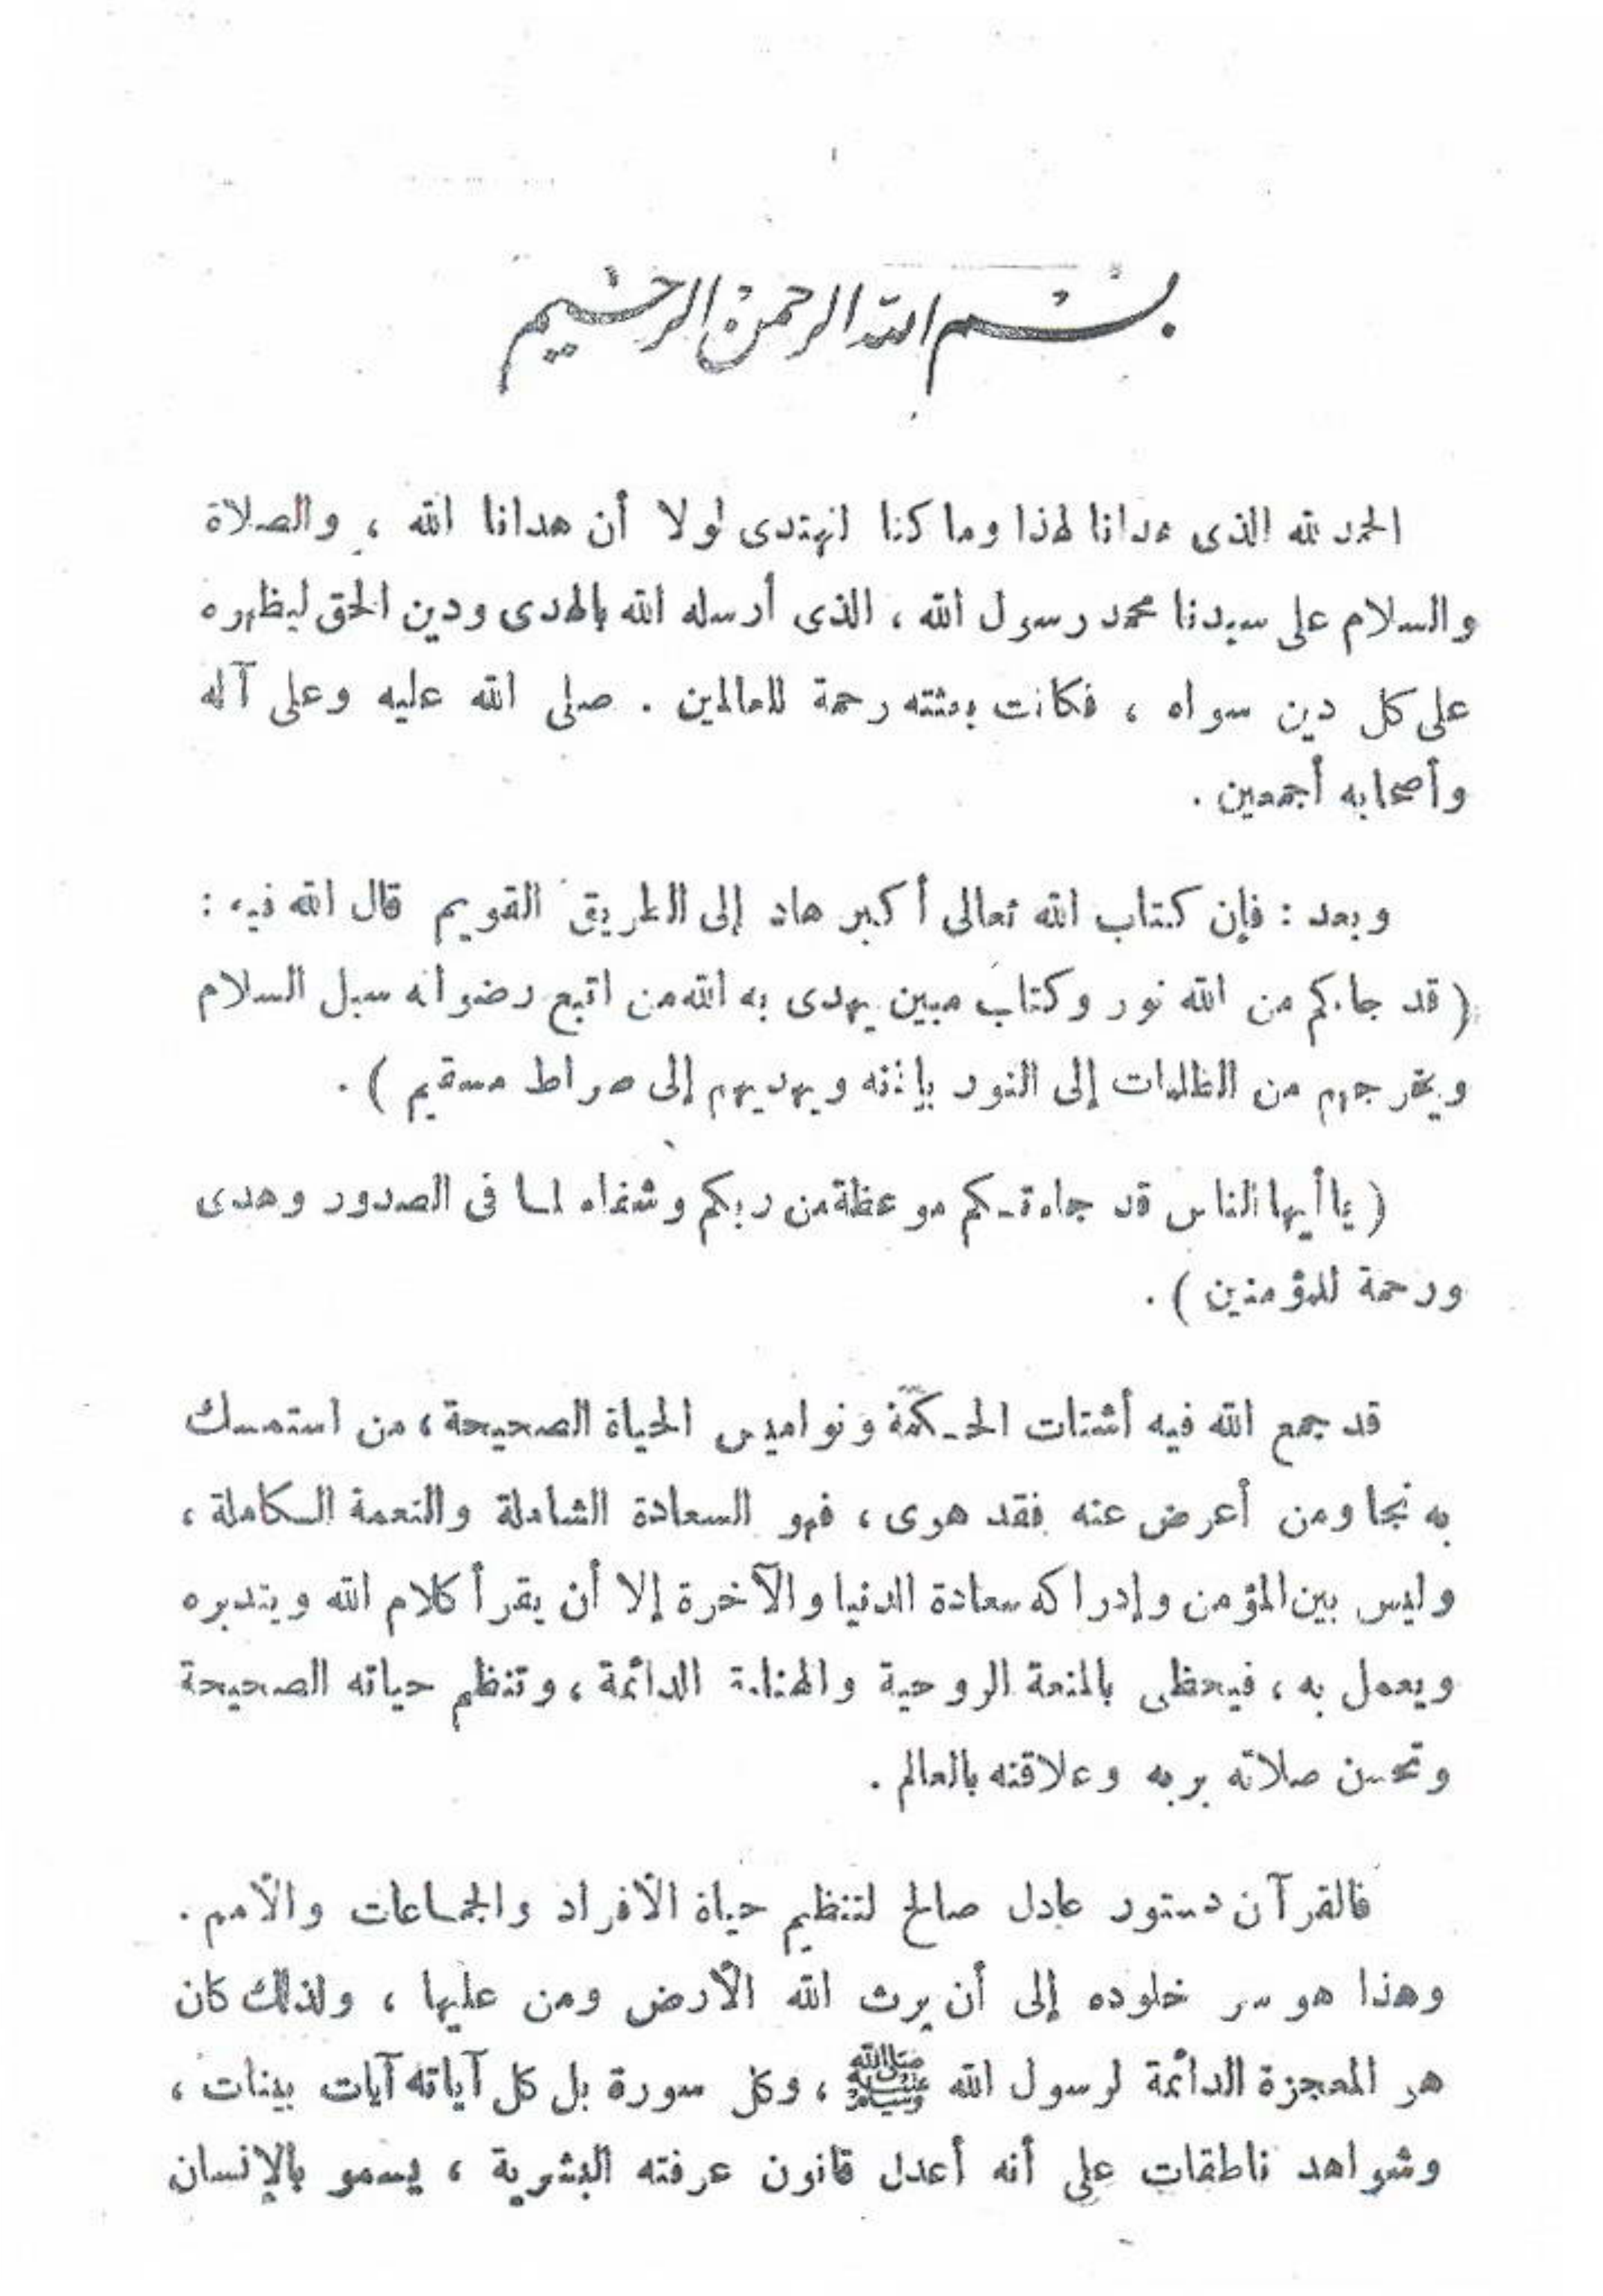 بسم الله الرحمن الرحيم
الحمد لله الذى هدانا لهذا وما كنا لنهتدى لولا أن هدانا الله ، والصلاة
والسلام على سيدنا محمد رسول الله ، الذى أرسله الله بالهدى ودين الحق ليظهره
على كل دين سواه ، فكانت بعثته رحمة للعالمين . صلى الله عليه وعلى آله
وأصحابه أجمعين .
وبعد : فإن كتاب الله تعالى أكبر هاد إلى الطريق القويم قال الله فيه :
( قد جاءكم من الله نور وكتاب مبين يهدى به الله من اتبع رضوانه سبل السلام
ويخرجهم من الظلمات إلى النور بإذنه ويهديهم إلى صراط مسقيم ) .
( يا أيها الناس قد جاءتكم موعظة من ربكم وشفاء لما فى الصدور وهدى
ورحمة للمؤمنين ) .
قد جمع الله فيه أشتات الحكمة ونواميس الحياة الصحيحة ، من استمسك
به نجا ومن أعرض عنه فقد هوى ، فهو السعادة الشاملة والنعمة الكاملة ،
وليس بين المؤمن وإدراكه سعادة الدنيا والآخرة إلا أن يقرأ كلام الله ويتدبره
ويعمل به ، فيحظى بالمتعة الروحية والهناءة الدائمة ، وتنظم حياته الصحيحة
وتحسن صلاته بربه وعلاقته بالعالم .
فالقرآن دستور عادل صالح لتنظيم حياة الأفراد والجماعات والأمم .
وهذا هو سر خلوده إلى أن يرث الله الأرض ومن عليها ، ولذلك كان
هو المعجزة الدائمة لرسول الله ﷺ ، وكل سورة بل كل آياته آيات بينات ،
وشواهد ناطقات على أنه أعدل قانون عرفته البشرية ، يسمو بالإنسان